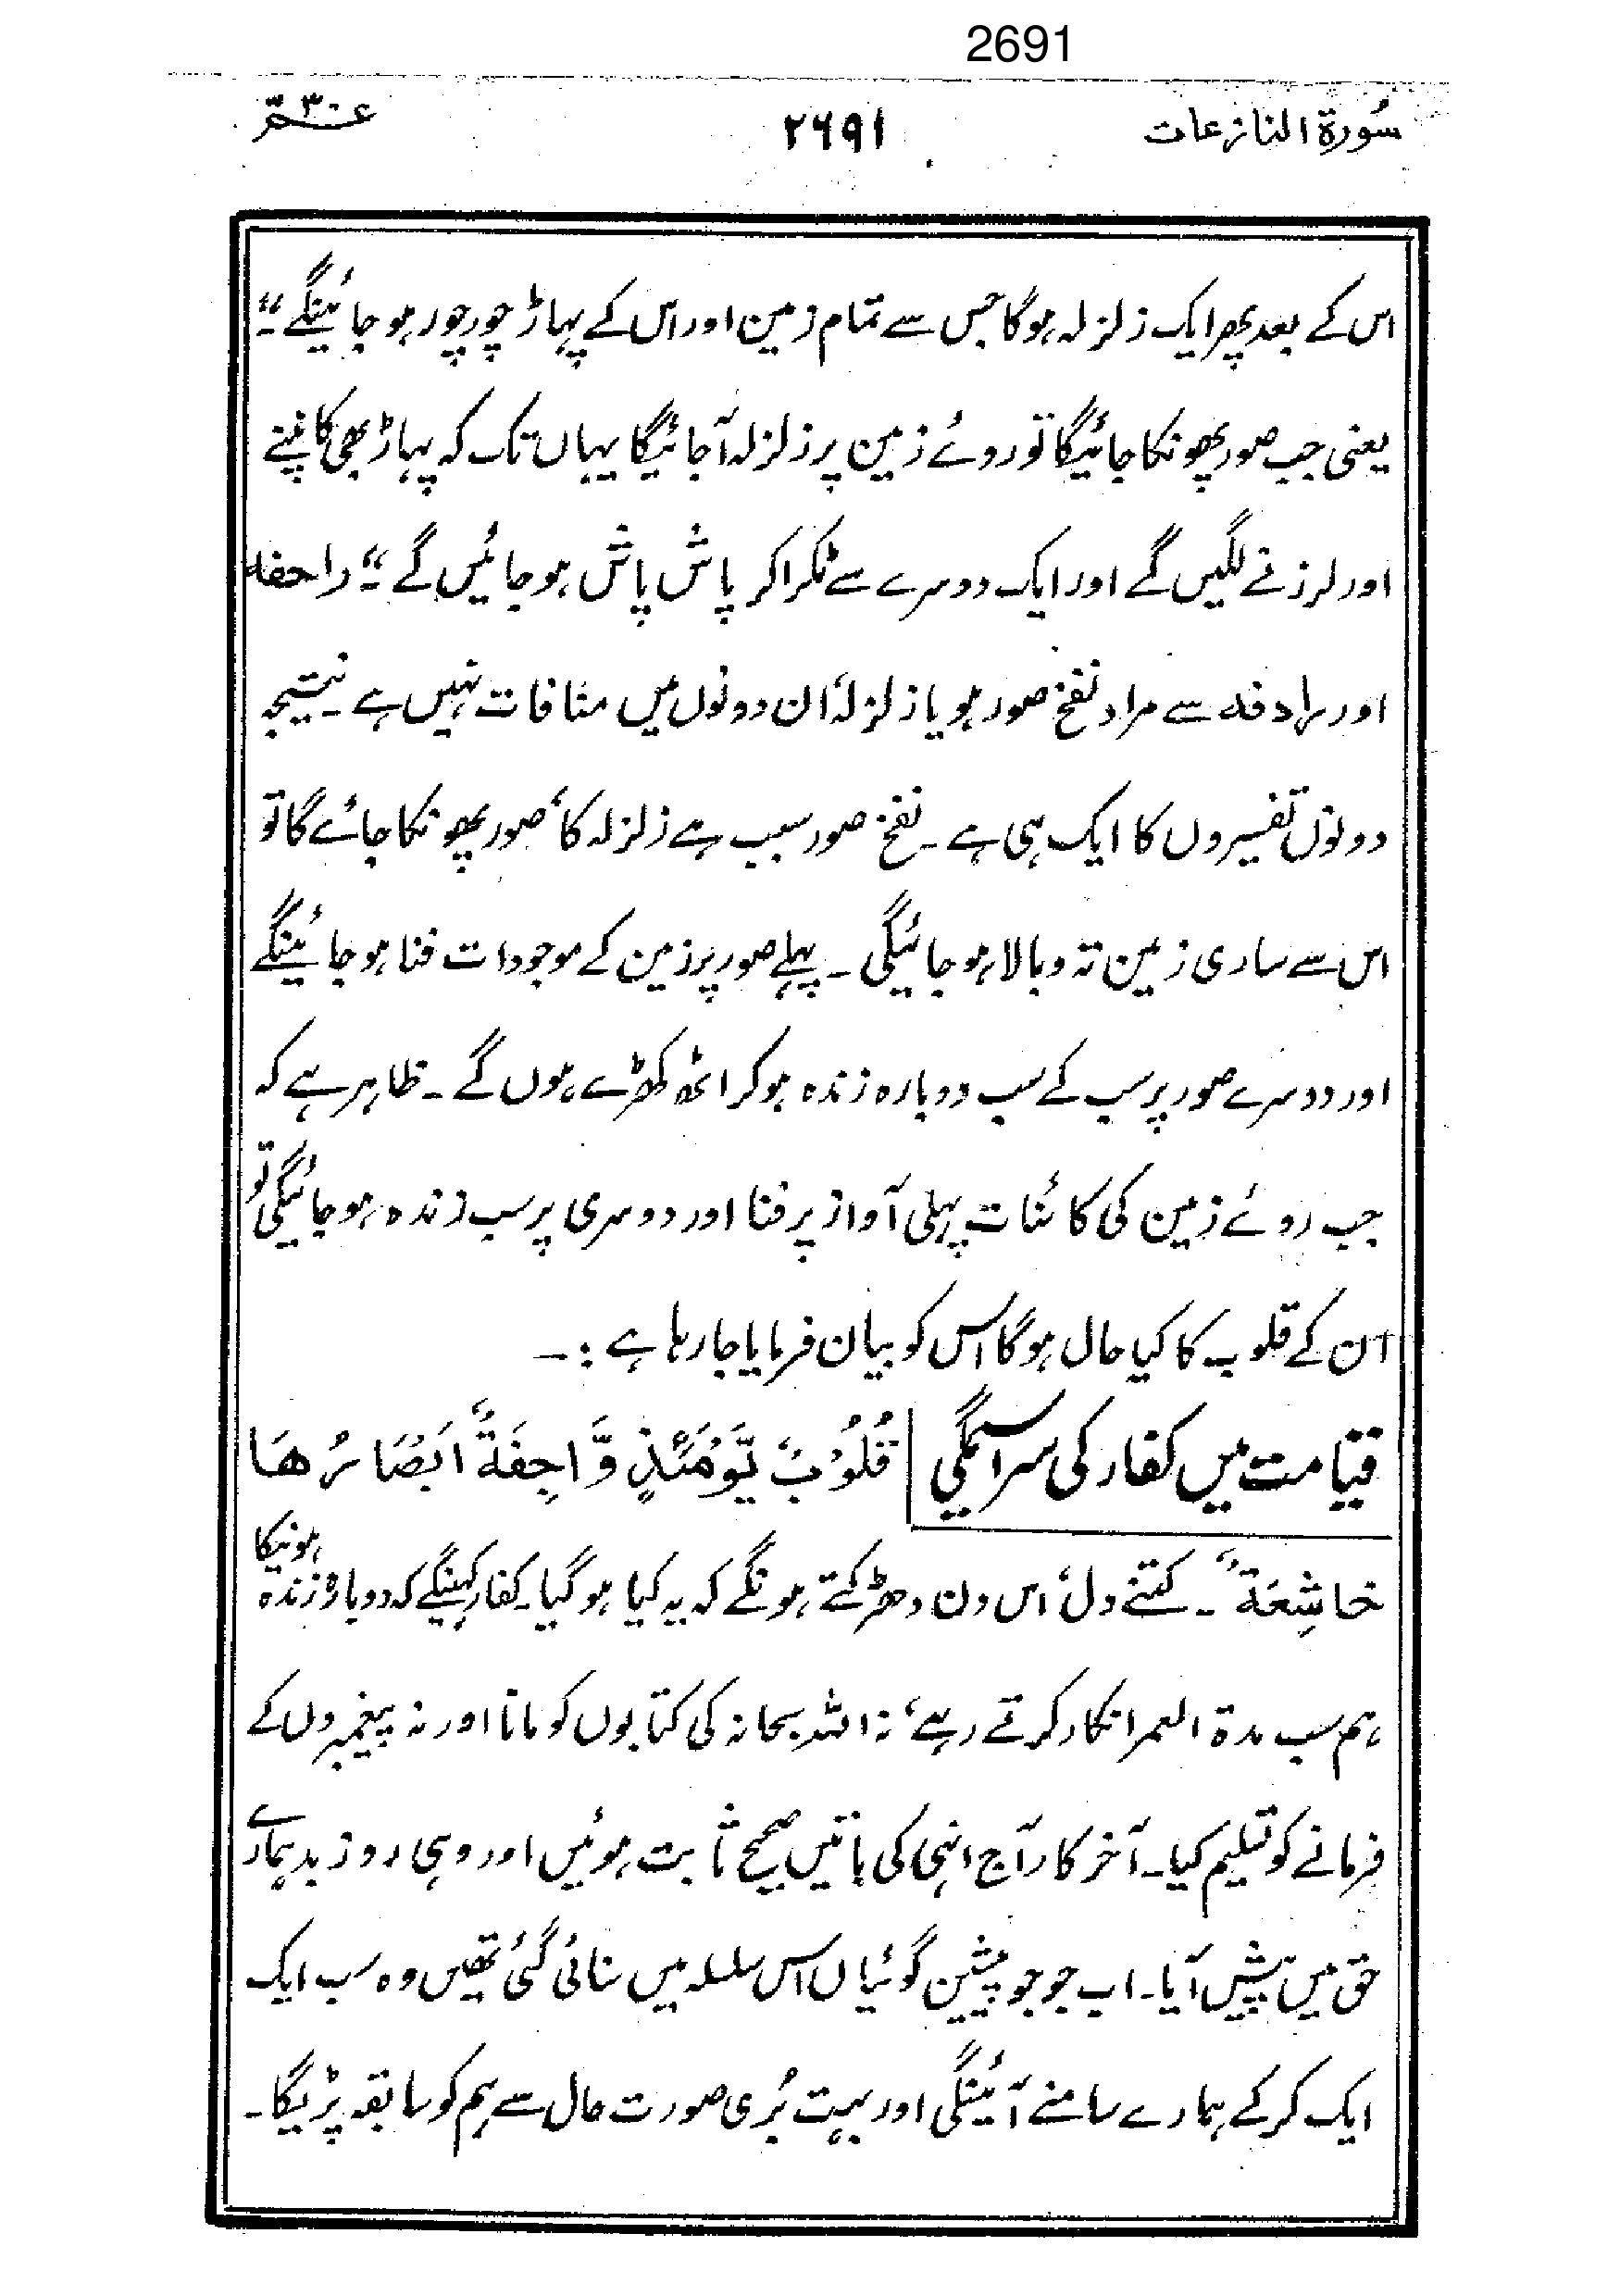 2691
سُورۃ النازعات ۲۶۹۱ عمّ ۳۰
اس کے بعد پھر ایک زلزلہ ہوگا جس سے تمام زمین اور اس کے پہاڑ چور چور ہو جائینگے"۔
یعنی جب صور پھونکا جائیگا تو روئے زمین پر زلزلہ آجائیگا یہاں تک کہ پہاڑ بھی کانپنے
اور لرزنے لگیں گے اور ایک دوسرے سے ٹکرا کر پاش پاش ہو جائیں گے"۔ راجفہ
اور رادفہ سے مراد نفخ صور ہو یا زلزلہ، ان دونوں میں منافات نہیں ہے۔ نتیجہ
دونوں تفسیروں کا ایک ہی ہے۔ نفخ صور سبب ہے زلزلہ کا، صور پھونکا جائے گا تو
اس سے ساری زمین تہ و بالا ہو جائیگی۔ پہلے صور پر زمین کے موجودات فنا ہو جائینگے
اور دوسرے صور پر سب کے سب دوبارہ زندہ ہو کر اٹھ کھڑے ہوں گے۔ ظاہر ہے کہ
جب روئے زمین کی کائنات پہلی آواز پر فنا اور دوسری پر سب زندہ ہو جائیگی تو
ان کے قلوب کا کیا حال ہوگا اس کو بیان فرمایا جا رہا ہے :۔
قیامت میں کفار کی سراسیمگی قُلُوْبٌ یَّوْمَئِذٍ وَّاجِفَةٌ اَبْصَارُهَا
خَاشِعَةٌ۔ کتنے دل، اس دن دھڑکتے ہونگے کہ یہ کیا ہو گیا۔ کفار کہینگے کہ دوبارہ زندہ ہونیکا
ہم سب مدۃ العمر انکار کرتے رہے، نہ اللہ سبحانہ کی کتابوں کو مانا اور نہ پیغمبروں کے
فرمانے کو تسلیم کیا۔ آخر کار آج انہی کی باتیں صحیح ثابت ہوئیں اور وہی روز بد ہمارے
حق میں پیش آیا۔ اب جو جو پیشین گوئیاں اس سلسلہ میں سنائی گئی تھیں وہ سب ایک
ایک کر کے ہمارے سامنے آئینگی اور بہت بُری صورت حال سے ہم کو سابقہ پڑیگا۔